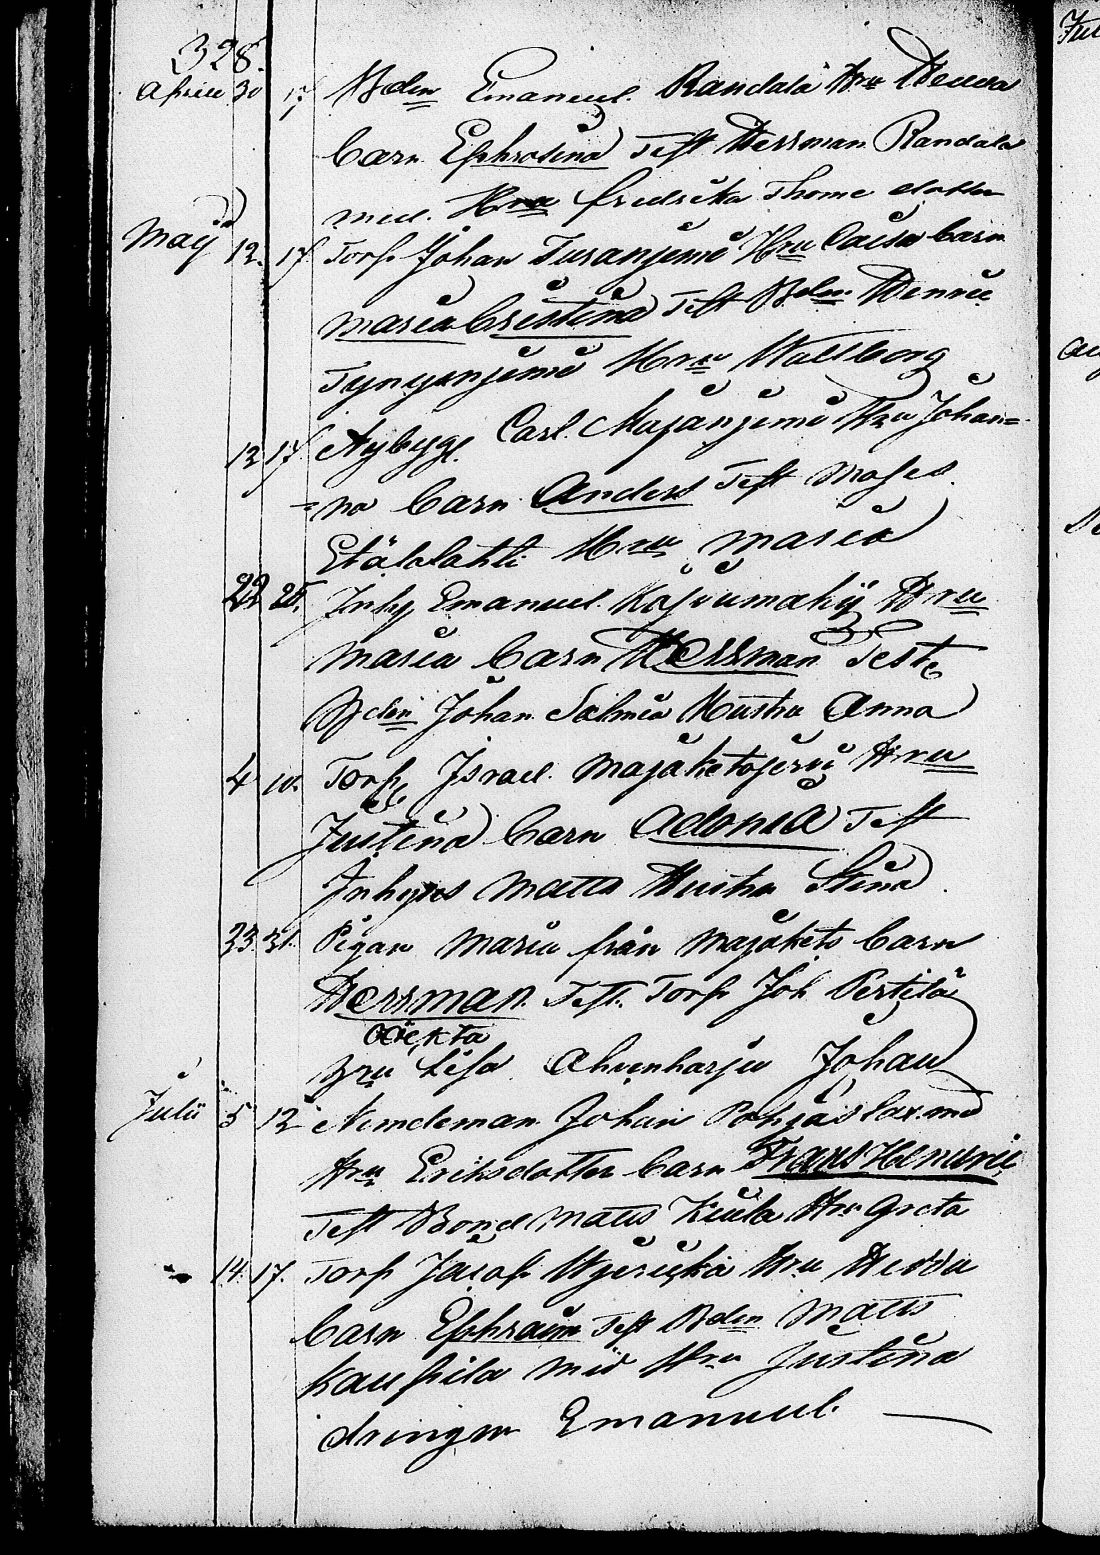 328.
Aprill 30 17 Bden Emanuel Randala Hru Hedda
barn Ephrosina Test Herrman Randala
med Hru fredrika Thome dotter
Maij 12. 17 Torp Johan Susanjemi Hru Caisa barn
Maria Cristina Test Bden Henric
Tynysnjemi Hru Wallborg
12 17 Nybygg. Carl Majanjemi Hru Johan=
=na barn Anders Test Moses
Etälälahti Hru Maria
22 25. Inhy Emanuel Koivumaki Hru
Maria barn Herrman Teste
Bden Johan Salmia Hustru Anna
4 10. Torp Israel Majaketojervi Hru
Justina barn Adonia Test
Inhyses Matts Hustru Stina
23. 31. Pigan Maria från Majakets barn
Herrman Test. Torp Joh Pertilä
oäckta
Hru Lisa Ahvenharju Johan
Julii 5 12 Nimdeman Johan Pohjaslax. med
Hru Eriksdotter barn Frans Henric
Test Bond Matts Kiula Hru Greta
14. 17. Torp Jacob Hru Hedda
barn Ephraim Test Bden Matts
Kauppila med Hru Justina
drängen Emanuel.